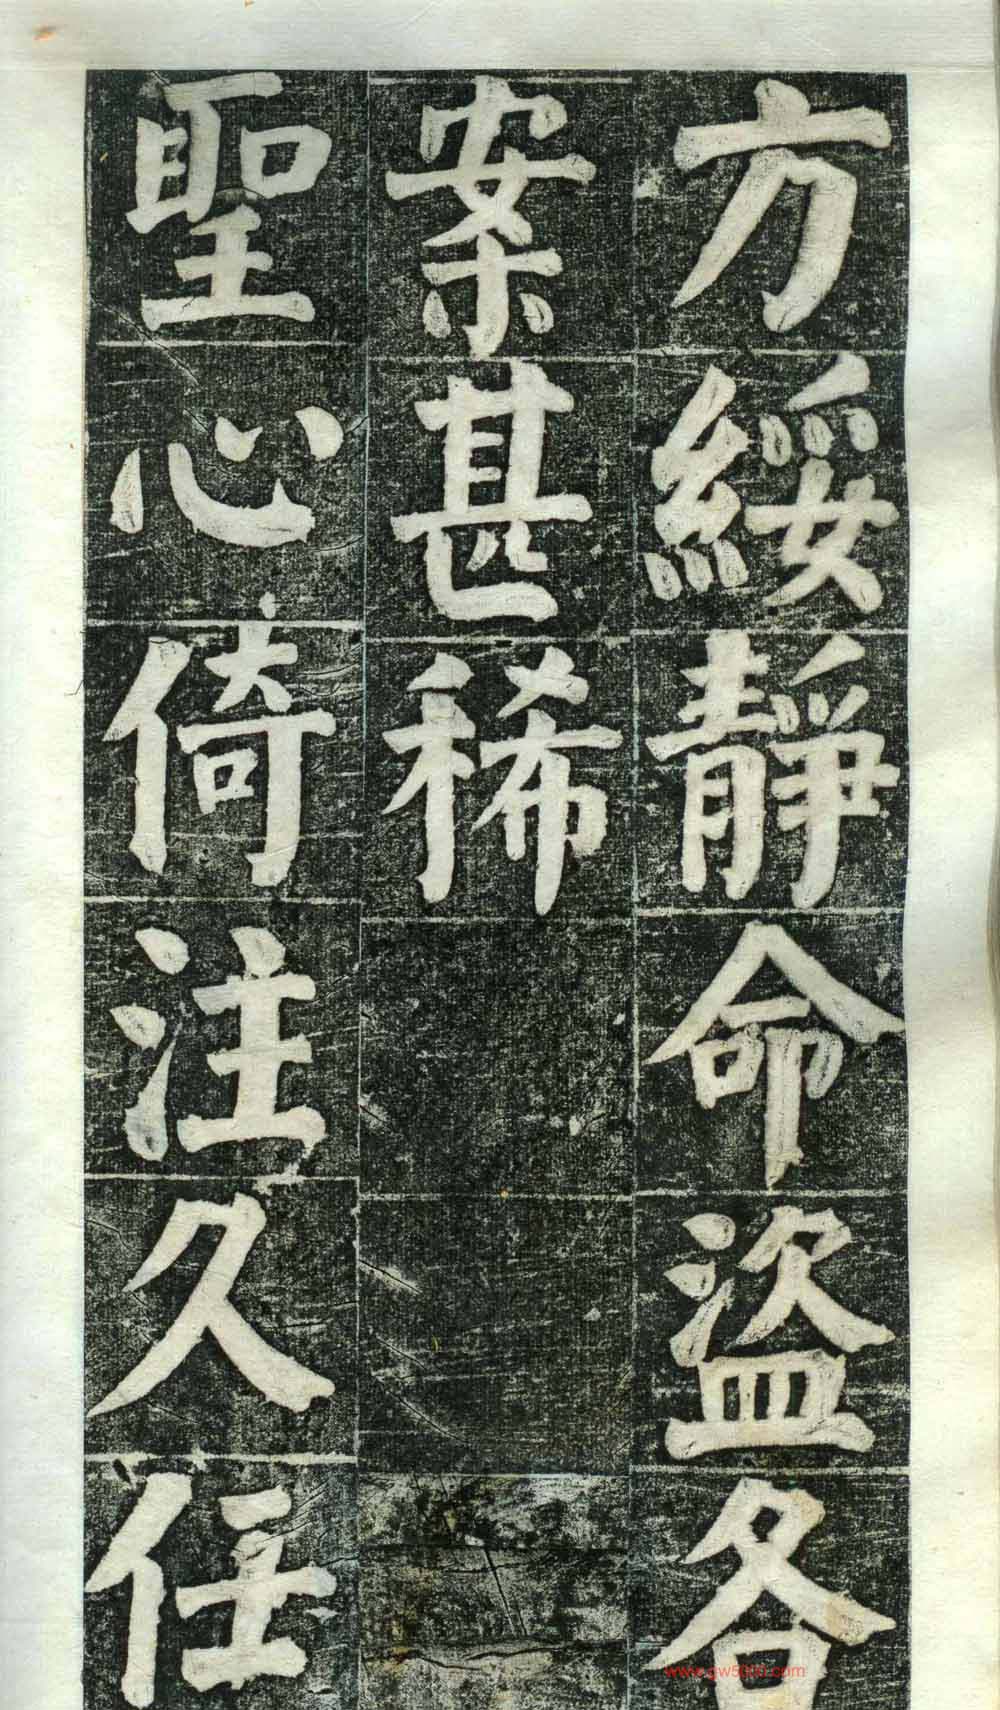 方綏靜命盜各
案甚稀
聖心倚注久任
www.gw5000.com